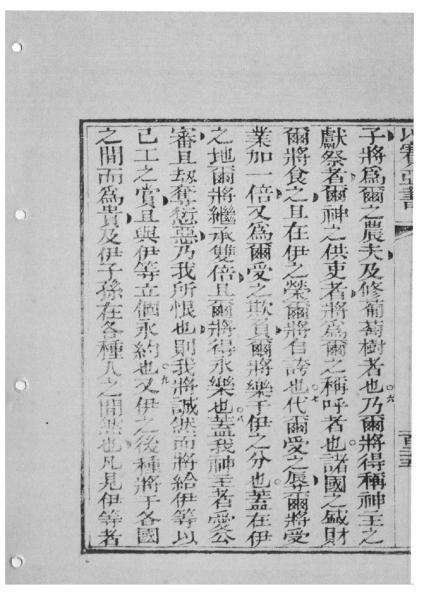 以賽亞書 百三五
子將爲爾之農夫及修葡萄樹者也。六乃爾將得稱神王之
獻祭者爾神之供吏者將爲爾之稱呼者也諸國之盛財
爾將食之且在伊之榮爾將自誇也。七代爾愛之辱爾將受
業加一倍又爲爾愛之欺負爾將樂于伊之分也蓋在伊
之地爾將繼承雙倍且爾將得永樂也。八蓋我神主者愛公
審且刼奪秽惡乃我所恨也則我將誠然而將給伊等以
已工之賞且與伊等立個永約也。九又伊之後種將于各國
之間而爲貴及伊子孫在各種人之間然也凡見伊等者